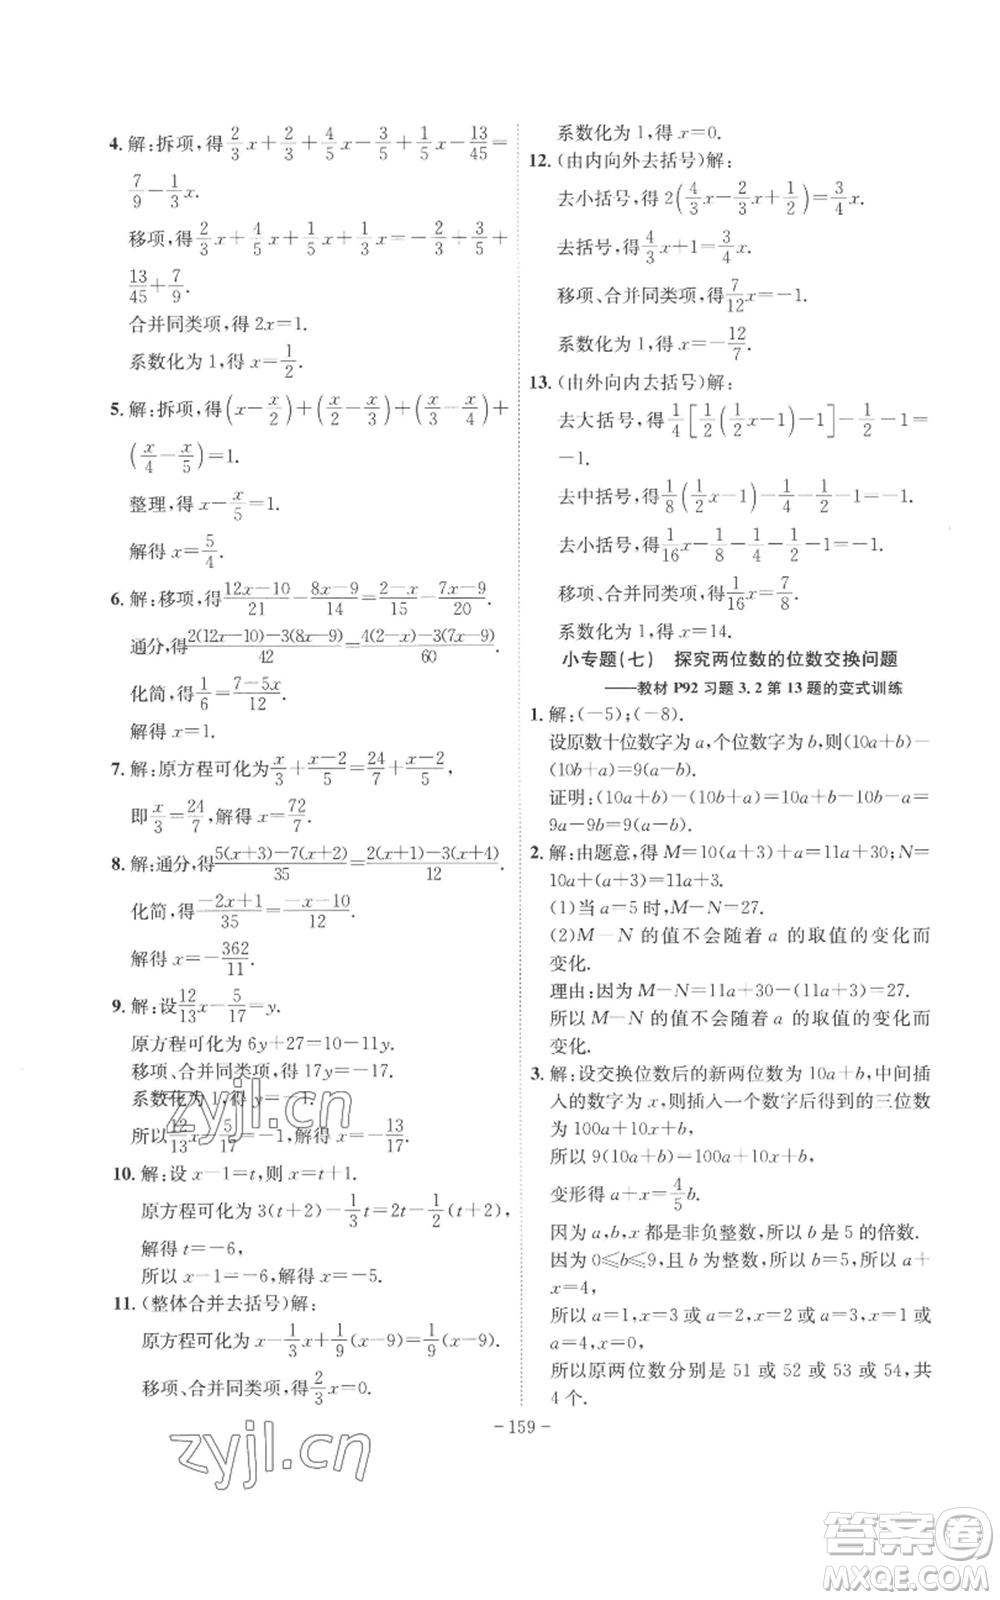 4. 解:拆项,得 2/3 x+2/3+4/5 x-3/5+1/5 x-13/45=
7/9-1/3 x.
移项,得 2/3 x+4/5 x+1/5 x+1/3 x=-2/3+3/5+
13/45+7/9.
合并同类项,得 2x=1.
系数化为 1,得 x=1/2.
5. 解:拆项,得(x-x/2)+(x/2-x/3)+(x/3-x/4)+
(x/4-x/5)=1.
整理,得 x-x/5=1.
解得 x=5/4.
6. 解:移项,得 (12x-10)/21-(8x-9)/14=(2-x)/15-(7x-9)/20.
通分,得 (2(12x-10)-3(8x-9))/42=(4(2-x)-3(7x-9))/60.
化简,得 1/6=(7-5x)/12.
解得 x=1.
7. 解:原方程可化为 x/3+(x-2)/5=24/7+(x-2)/5,
即 x/3=24/7,解得 x=72/7.
8. 解:通分,得 (5(x+3)-7(x+2))/35=(2(x+1)-3(x+4))/12.
化简,得 (-2x+1)/35=(-x-10)/12.
解得 x=-362/11.
9. 解:设 12/13 x-5/17=y.
原方程可化为 6y+27=10-11y.
移项、合并同类项,得 17y=-17.
系数化为 1,得 y=-1.
所以 12/13 x-5/17=-1,解得 x=-13/17.
10. 解:设 x-1=t,则 x=t+1.
原方程可化为 3(t+2)-1/3 t=2t-1/2(t+2),
解得 t=-6,
所以 x-1=-6,解得 x=-5.
11. (整体合并去括号)解:
原方程可化为 x-1/3 x+1/9(x-9)=1/9(x-9).
移项、合并同类项,得 2/3 x=0.
系数化为 1,得 x=0.
12. (由内向外去括号)解:
去小括号,得 2(4/3 x-2/3 x+1/2)=3/4 x.
去括号,得 4/3 x+1=3/4 x.
移项、合并同类项,得 7/12 x=-1.
系数化为 1,得 x=-12/7.
13. (由外向内去括号)解:
去大括号,得 1/4[1/2(1/2 x-1)-1]-1/2-1=
-1.
去中括号,得 1/8(1/2 x-1)-1/4-1/2-1=-1.
去小括号,得 1/16 x-1/8-1/4-1/2-1=-1.
移项、合并同类项,得 1/16 x=7/8.
系数化为 1,得 x=14.
小专题(七) 探究两位数的位数交换问题
——教材 P92 习题 3.2 第 13 题的变式训练
1. 解:(-5);(-8).
设原数十位数字为 a,个位数字为 b,则(10a+b)-
(10b+a)=9(a-b).
证明:(10a+b)-(10b+a)=10a+b-10b-a=
9a-9b=9(a-b).
2. 解:由题意,得 M=10(a+3)+a=11a+30;N=
10a+(a+3)=11a+3.
(1)当 a=5 时,M-N=27.
(2)M-N 的值不会随着 a 的取值的变化而
变化.
理由:因为 M-N=11a+30-(11a+3)=27.
所以 M-N 的值不会随着 a 的取值的变化而
变化.
3. 解:设交换位数后的新两位数为 10a+b,中间插
入的数字为 x,则插入一个数字后得到的三位数
为 100a+10x+b,
所以 9(10a+b)=100a+10x+b,
变形得 a+x=4/5 b.
因为 a,b,x 都是非负整数,所以 b 是 5 的倍数.
因为 0≤b≤9,且 b 为整数,所以 b=5,所以 a+
x=4,
所以 a=1,x=3 或 a=2,x=2 或 a=3,x=1 或
a=4,x=0.
所以原两位数分别是 51 或 52 或 53 或 54,共
4 个.
- 159 -
zyjl.cn
zyjl.cn
答案圈
MXQE.COM